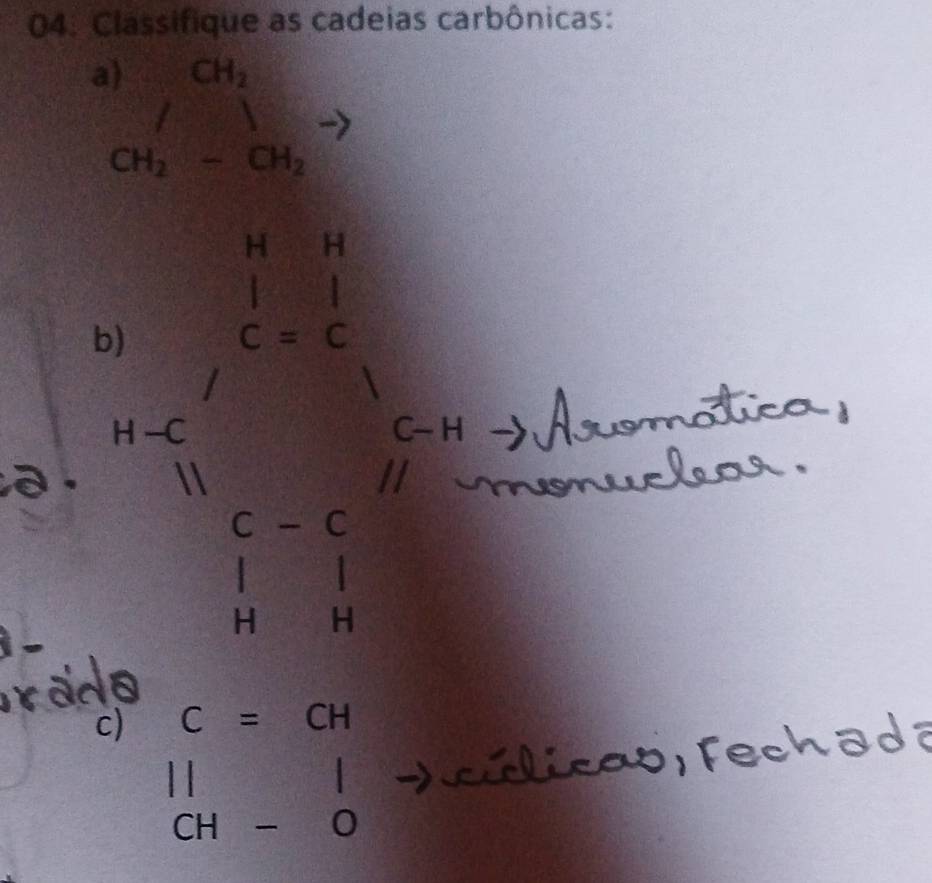 04. Classifique as cadeias carbônicas:
a) CH₂
/ \ →
CH₂ - CH₂
H H
| |
b) C = C
/ \
H-C C-H → Aromática,
ca. \\ // mononuclear.
C - C
| |
H H
c) C = CH
|| | → cíclicas, Fechada
CH - O